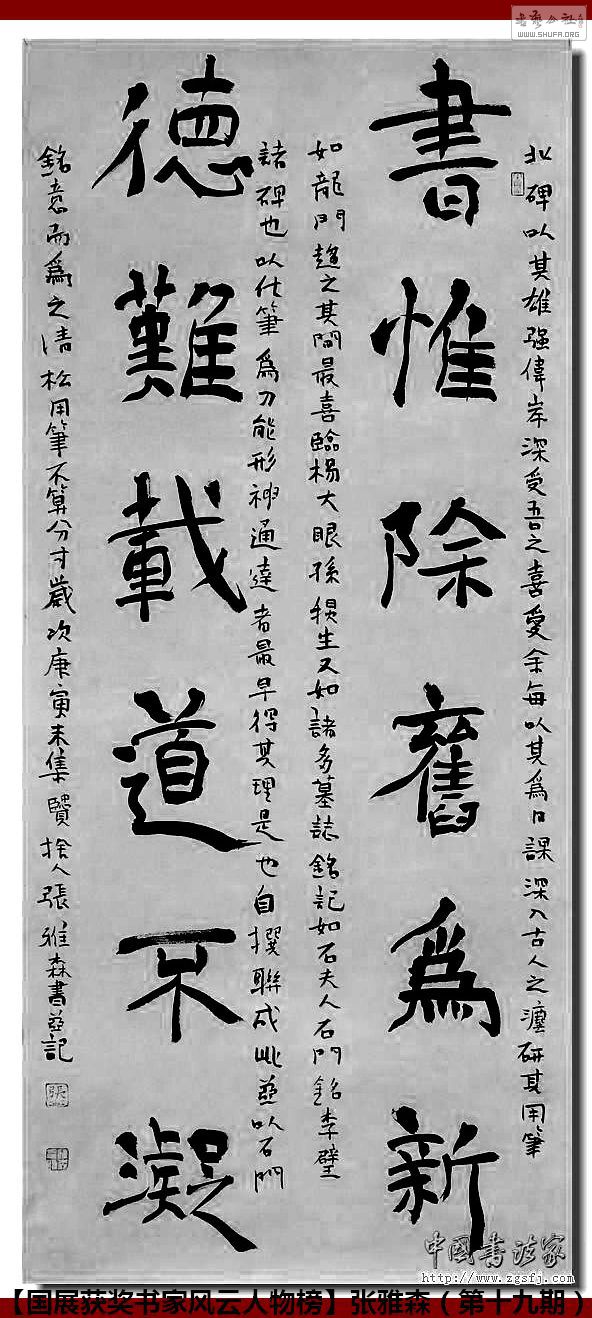 書藝公社
WWW.SHUFA.ORG
書惟除舊爲新
德難載道不凝
北碑以其雄强偉岸深受吾之喜愛余每以其爲日課深入古人之 研其用筆
如龍門 之其間最喜臨楊大眼孫秋生又如諸多墓誌銘記如石夫人石門銘李璧
諸碑也以代筆爲刀能形神通達者最早得其理是也自撰聯成此並以石門
銘意而爲之清松用筆不算分寸歲次庚寅末集賢捨人張雅森書並記
中國書法家
http://www.zgsfj.com
【国展获奖书家风云人物榜】张雅森（第十九期）